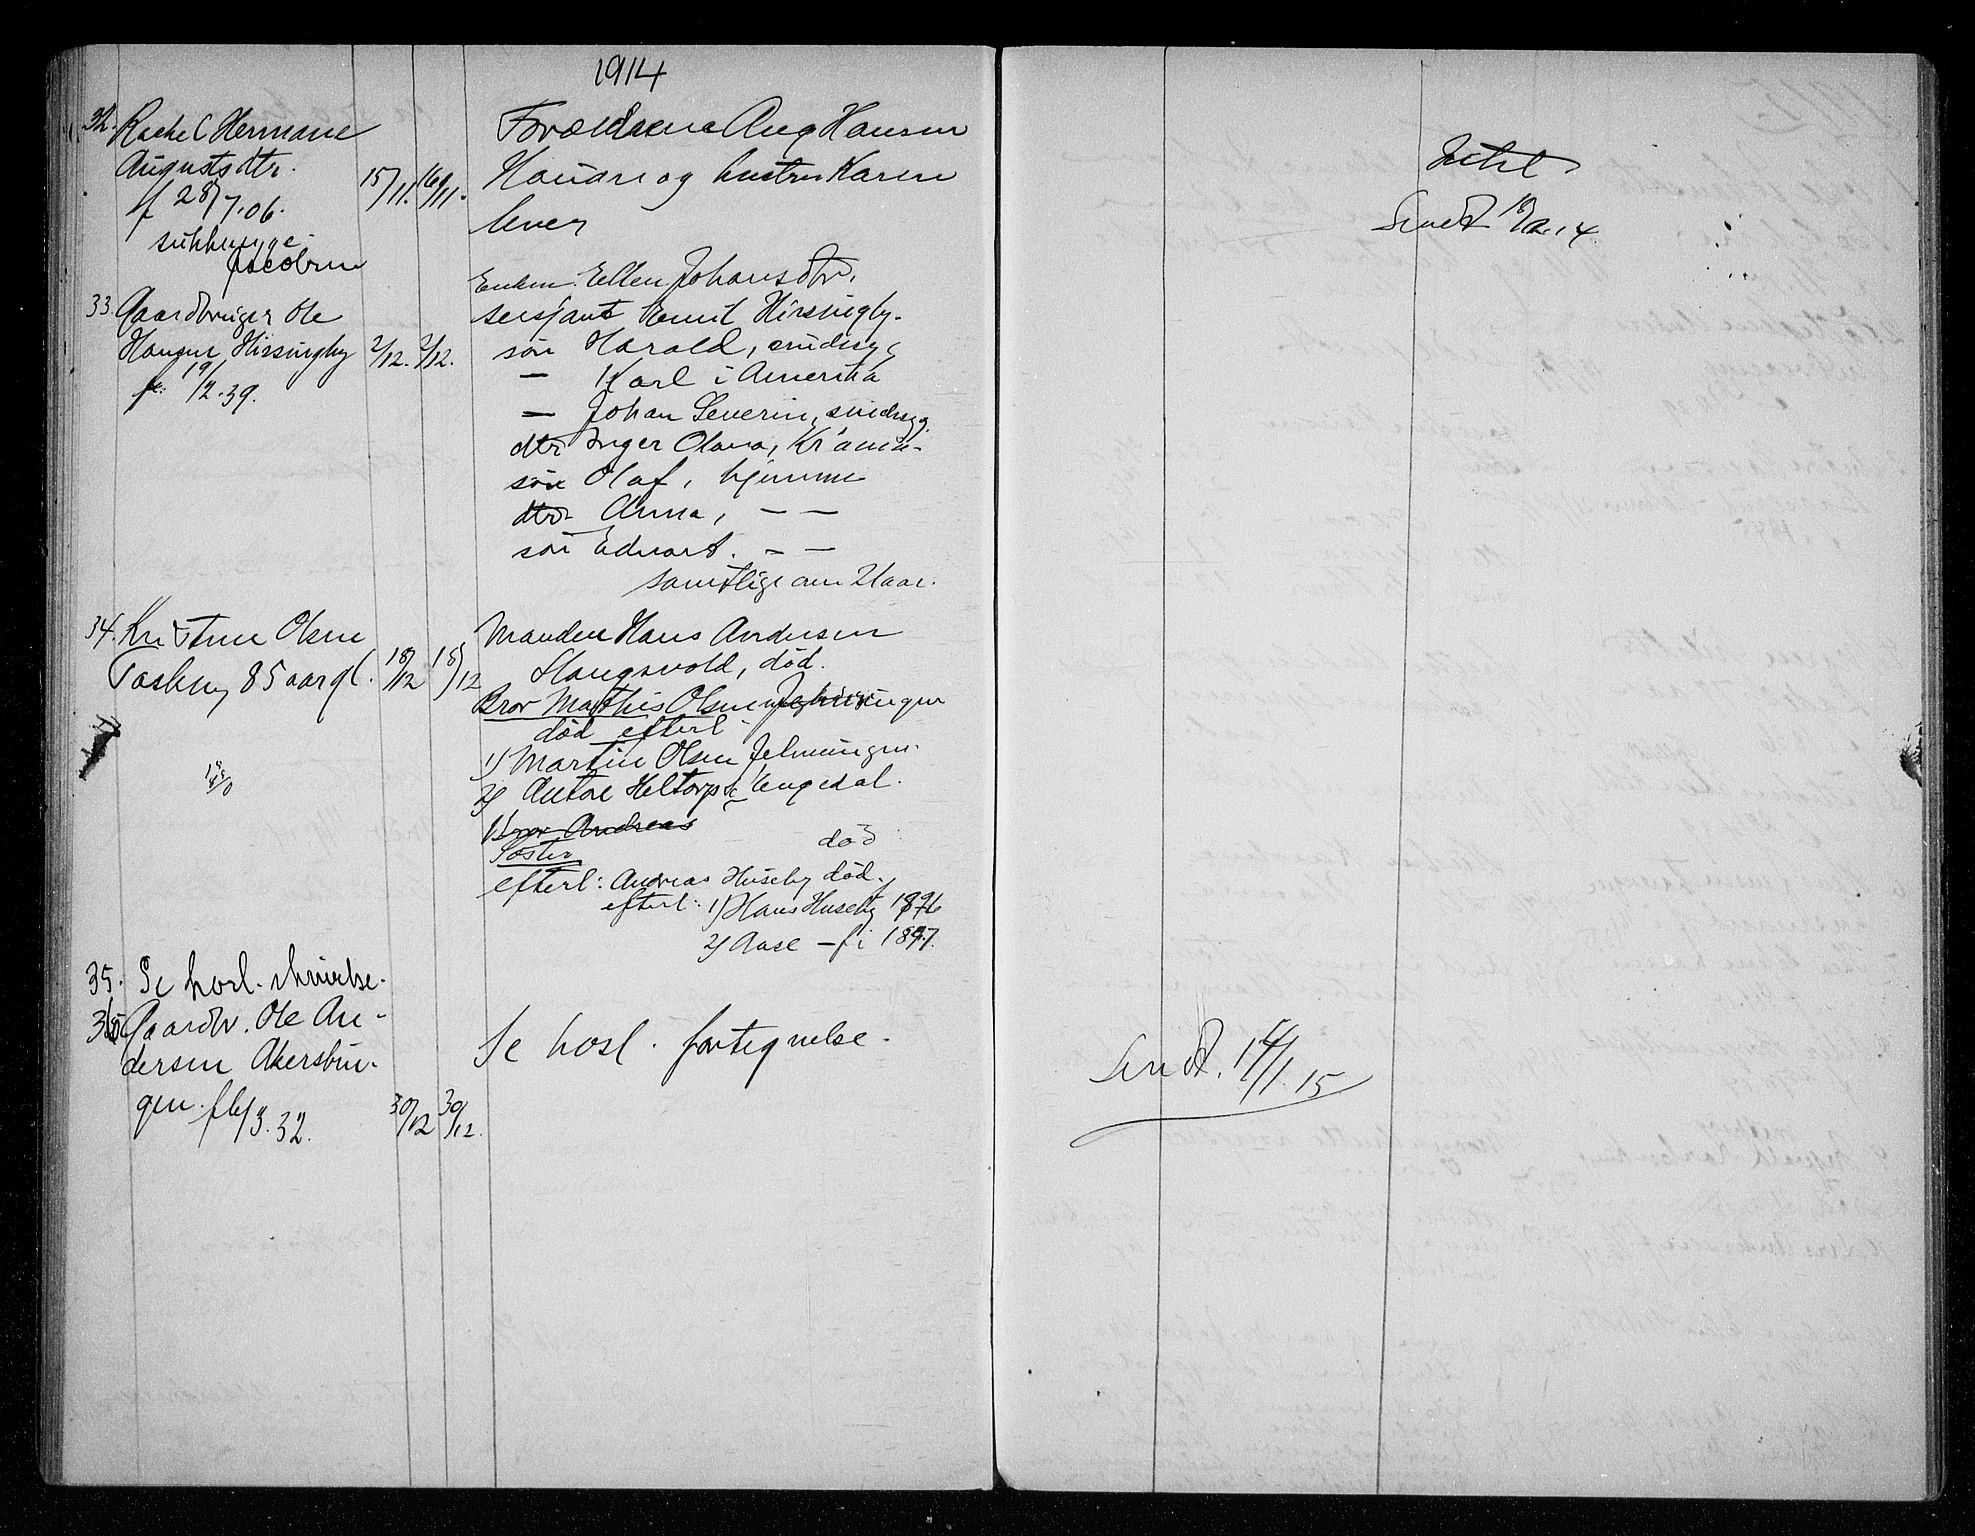 1914
32. Rachel Hermane
Augustsdtr.
f 28/7.06.
sukkersyge.
Jacobsen
15/11. 16/11.
Forældrene Aug Hansen
og hustru Karen
lever
Intet
Sendt 19/12.14
33. Gaardbruger Ole
Hansen Hirsingby
f: 19/2.39.
2/12. 2/12.
Enken Ellen Johansdtr.
sersjant Emil Hirsingby.
søn Harald, sindssyg
— Karl i Amerika
— Johan Severin, sindssyg
dtr Inger Olava, Kr'ania.
søn Olaf, hjemme
dtr Anna, — —
søn Edvart. — —
samtlige over 21 aar.
34. Kristine Olsen
Taskeny 85 aar gl.
18/12 18/12
Manden Hans Andersen
Slangsvold, død.
Bror Mathis Olsen Jelmuingen
død efterl
1) Martin Olsen Jelmuingen.
2) Anton Heltorpsk Engedal.
1) bror Andreas
Søster død
efterl: Andreas Huseby død.
efterl: 1) Hans Huseby 1896
2) Aase — f i 1897.
35. Se hosl. skrivelse.
36 Gaardbr. Ole An-
dersen Akersbrin-
gen. f 6/3.32.
30/12 30/12.
Se hosl. fortegnelse.
Sendt. 14/1.15